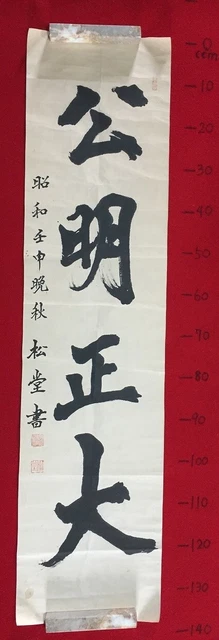 公明正大
昭和壬申晩秋 松堂書
0
ccm
10
20
30
40
50
60
70
80
90
100
110
120
130
140